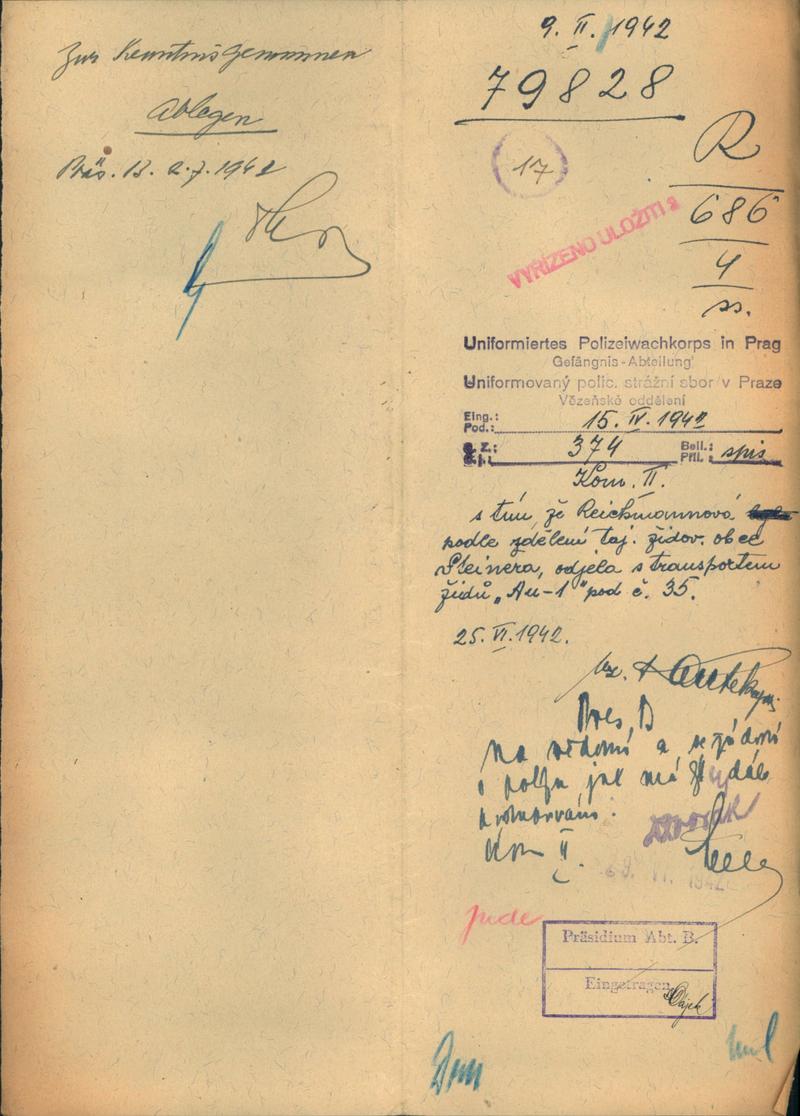 Zur Kenntnis genommen
Ablegen
Präs. B. 2.7.1942
9. II. 1942
79828
17
R
686
4
VYŘÍZENO ULOŽITI
Uniformiertes Polizeiwachkorps in Prag
Gefängnis-Abteilung
Uniformovaný polic. strážní sbor v Praze
Vězeňské oddělení
Eing.:
Pod.: 15. IV. 1942
G. Z.: 374 Beil.:
Č. j.: Příl.: spis
Kom. II.
s tím, že Reichmannová
podle sdělení taj. židov. obce
Steinera, odjela s transportem
židů „Au-1" pod č. 35.
25. VI. 1942.
Pres. B
na vědomí a se žádostí
o
Kom II.
Jude
Präsidium Abt. B.
Eingetragen